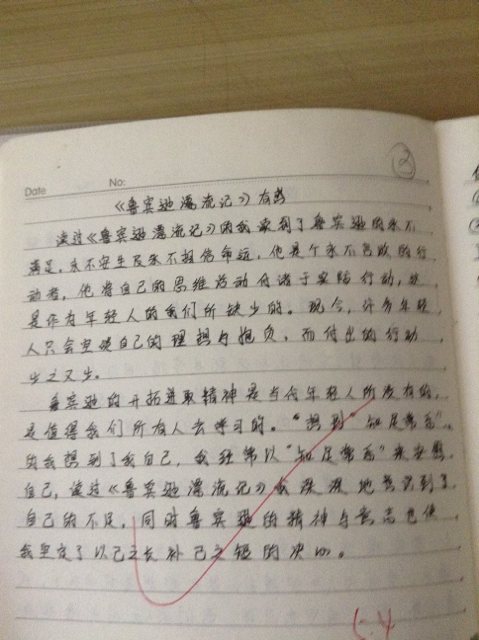 ②
Date No:
《鲁宾逊漂流记》有感
读过《鲁宾逊漂流记》的我感到了鲁宾逊的永不
满足,永不安生及永不相信命运,他是个永不言败的行
动者,他将自己的思维活动付诸于实际行动,这
是作为年轻人的我们所缺少的。现今,许多年轻
人只会空谈自己的理想与抱负,而付出的行动
少之又少。
鲁宾逊的开拓进取精神是当代年轻人所没有的,
是值得我们所有人去学习的。“想到”知足常乐”,
的我想到了我自己,我经常以“知足常乐”来安慰
自己,读过《鲁宾逊漂流记》我深深地意识到了
自己的不足,同时鲁宾逊的精神与意志也使
我坚定了以己之长补己之短的决心。